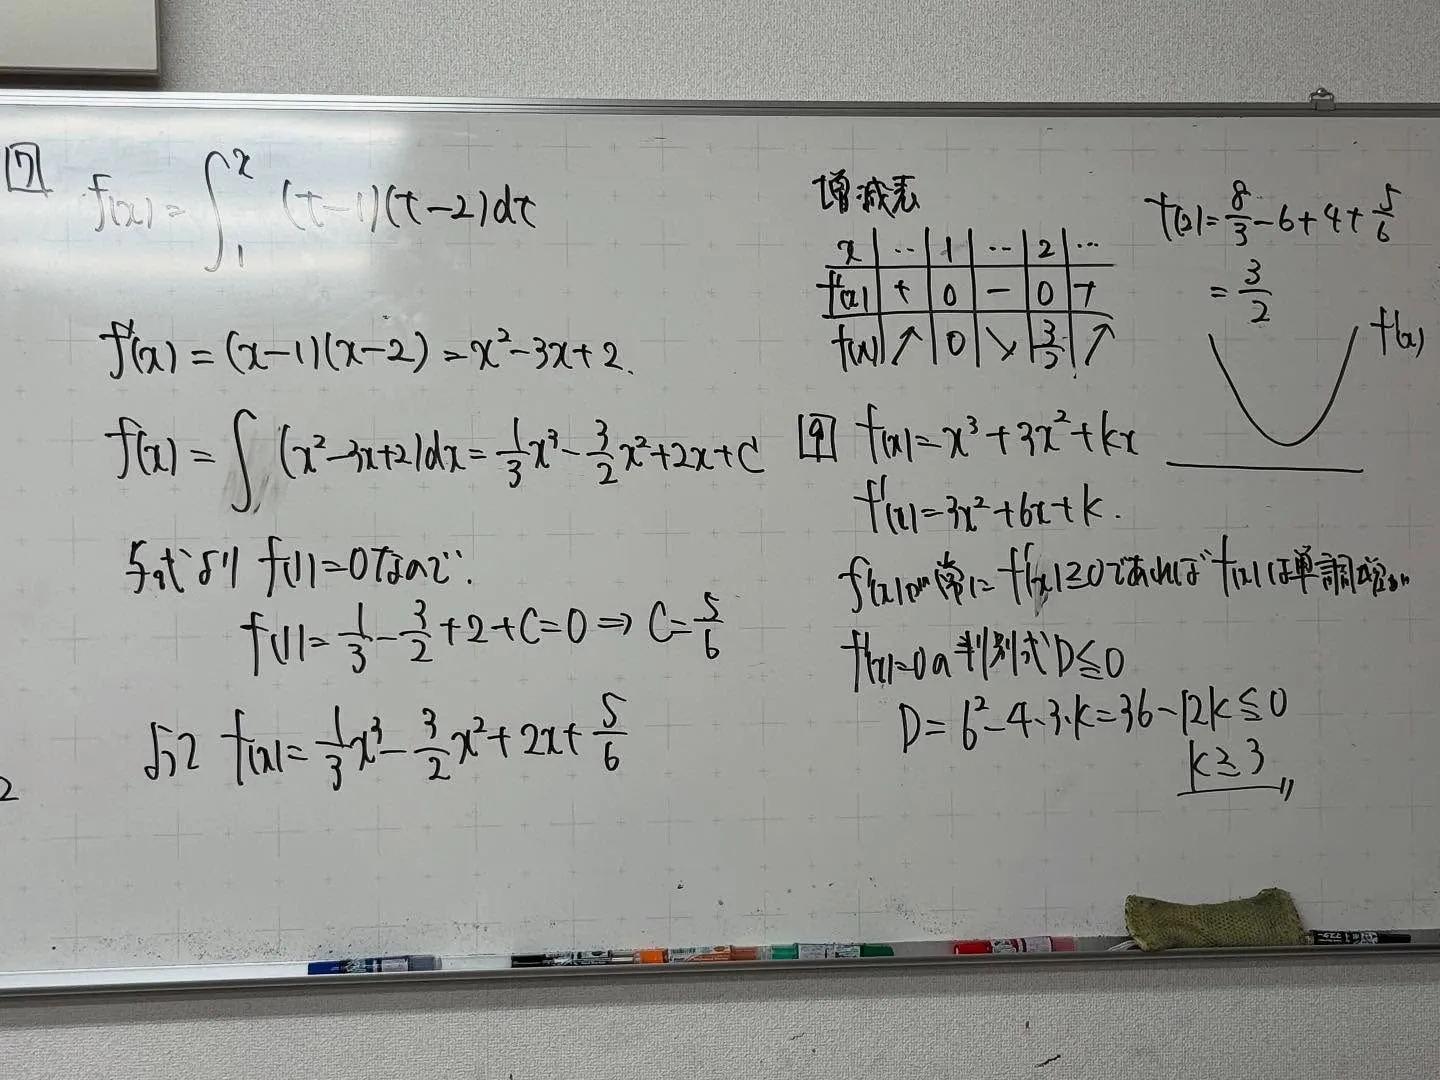 7
f(x)=∫₁ˣ(t-1)(t-2)dt
f'(x)=(x-1)(x-2)=x²-3x+2.
f(x)=∫(x²-3x+2)dx=1/3x³-3/2x²+2x+C
与式より f(1)=0なので.
f(1)=1/3-3/2+2+C=0⇒C=5/6
よって f(x)=1/3x³-3/2x²+2x+5/6
2
増減表
x | ‥ | 1 | ‥ | 2 | …
f'(x) | + | 0 | - | 0 | +
f(x) | ↗ | 0 | ↘ | 3/2 | ↗
f(2)=8/3-6+4+5/6
=3/2
f'(x)
9 f(x)=x³+3x²+kx
f'(x)=3x²+6x+k.
f'(x)が常に f'(x)≧0であれば f(x)は単調増加
f'(x)=0の判別式D≦0
D=6²-4・3・k=36-12k≦0
k≧3